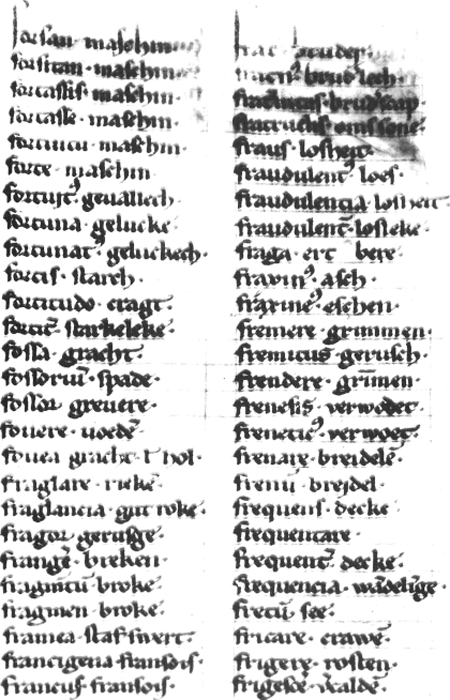 forsan· maschin
forsitan· maschin·
fortassis· maschin·
fortasse· maschin·
fortuitu· maschin·
forte· maschin
fortuitꝰ· geuallech·
fortuna· gelucke·
fortunatꝰ· geluckech·
fortis· starch·
fortitudo· cragt·
fortit̄· starkeleke·
fossa· gracht·
fossoriū· spade·
fossor greuere·
fouere· uoedē
fouea gracht· ł hol·
fraglare· riekē·
fraglancia· gut roke·
fragor· gerusge·
frangē· breken·
fragmītū· broke·
fragmen· broke·
framea· staf swert·
francigena· fransois·
francus· fransois·
frat bruder·
fratnꝰ· brud lech·
bruderscap·
fraus· losheit·
fraudulentꝰ· loes·
fraudulencia· losheit·
fraudulent̄· losleke·
fraga· ert bere·
fraxinꝰ· asch·
fraxineꝰ· eschen·
fremere· grimmen·
fremitus· gerusch·
frendere· grīmen·
frenesis· verwodet·
freneticꝰ· verwoet·
frenare· breidelē·
frenū· breidel·
frequens· decke·
frequentare·
frequent̄· decke·
frequencia· wādelīge·
fretū· see·
fricare· crawē·
frigere· rosten·
frigescē· walde